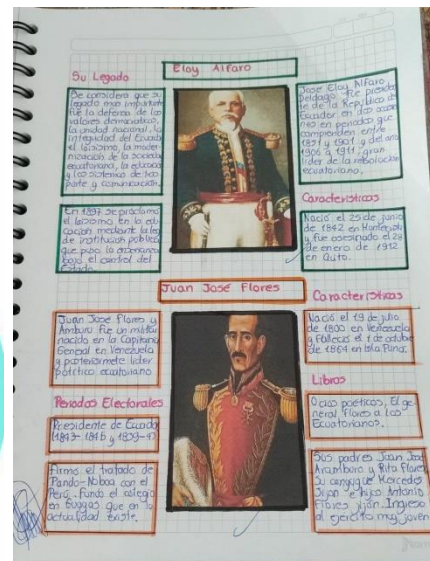 Eloy Alfaro
Su Legado
Se considera que su
legado mas importante
fue la defensa de los
valores democraticos,
la unidad nacional, la
integridad del Ecuador
el laicismo, la moder-
nización de la sociedad
ecuatoriana, la educación
y los sistemas de trans-
porte y comunicación.
En 1897 se proclamo
el laicismo en la edu-
cación mediante la ley
de institución publica
que puso la enseñanza
bajo el control del
Estado.
Jose Eloy Alfaro
Delgado fue presiden
te de la República de
Ecuador en dos ocasio
nes en periodos que
comprenden entre
y 1901 y del año
1906 a 1911, gran
lider de la revolución
ecuatoriana.
Caracteristicas
Nació el 25 de junio
de 1842 en Montecristi
y fue asesinado el 28
de enero de 1912
en Quito.
Juan José Flores
Juan José Flores y
Aramburu fue un militar
nacido en la Capitania
General en Venezuela
y lider
politico ecuatoriano
Periodos Electorales
Presidente de Ecuador
Firmo el tratado de
Pando-Noboa con el
Perú. Fundo el colegio
en que en la
actualidad existe.
Caracteristicas
Nació el 19 de julio
de 1800 en Venezuela
y fallecio el 1 de octubre
de 1864 en Isla Puna.
Libros
Ocios poéticos, El ge-
neral flores a los
Ecuatorianos.
Sus padres Juan José
Aramburo y Rita Flores
Su conyugue Mercedes
Jijon e hijos Antonio
Flores jijón. Ingreso
al ejercito muy joven